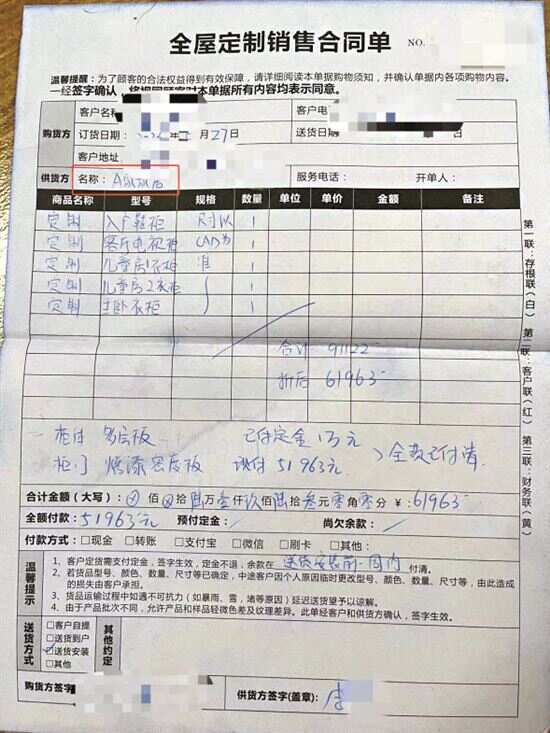 全屋定制销售合同单 NO.
温馨提醒：为了顾客的合法权益得到有效保障，请详细阅读本单据购物须知，并确认单据内各项购物内容。
一经签字确认，将视同顾客对本单据所有内容均表示同意。
购货方
客户名 客户电
订货日期： 月27 送货日
客户地址
供货方 名称： 服务电话： 开单人：
商品名称 型号 规格 数量 单位 单价 金额 备注
定制 入户鞋柜 尺寸以 1
定制 客厅电视柜 CAD为 1
定制 儿童房1衣柜 准 1
定制 儿童房2衣柜 1
定制 主卧衣柜 1
合计 91122
折后 61963
多层板 已付定金1万元
柜门 烤漆密度板 现付51963元 全款已付清
合计金额（大写）： 佰 拾陆万壹仟玖佰陆拾叁元零角零分 ¥:61963
全额付款：51963元 预付定金： 尚欠余款：
付款方式： □现金 □转账 □支付宝 □微信 □刷卡 □其他：
温馨提示
1、客户定货需支付定金，签字生效，定金不退，余款在送货安装前一周内付清。
2、若货品型号、颜色、数量、尺寸等已确定，中途客户因个人原因临时更改型号、颜色、数量、尺寸等，由此造成的损失由客户承担。
3、货品运输过程中如遇不可抗力（如暴雨、雪，堵等原因）延迟送货望予以谅解。
4、由于产品批次不同，允许产品和样品轻微色差及纹理差异。此单经客户和供货方确认，签字生效。
送货方式
□客户自提
□送货到户
□送货安装
□其他
其他约定
购货方签字 供货方签字(盖章)： 李
第一联：存根联（白） 第二联：客户联（红） 第三联：财务联（黄）